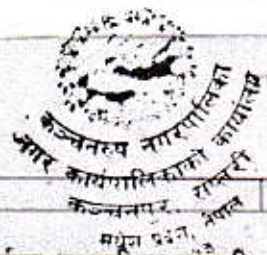 कञ्चनरुप नगरपालिका
नगर कार्यपालिकाको कार्यालय
कञ्चनपुर, सप्तरी
मधेश प्रदेश, नेपाल